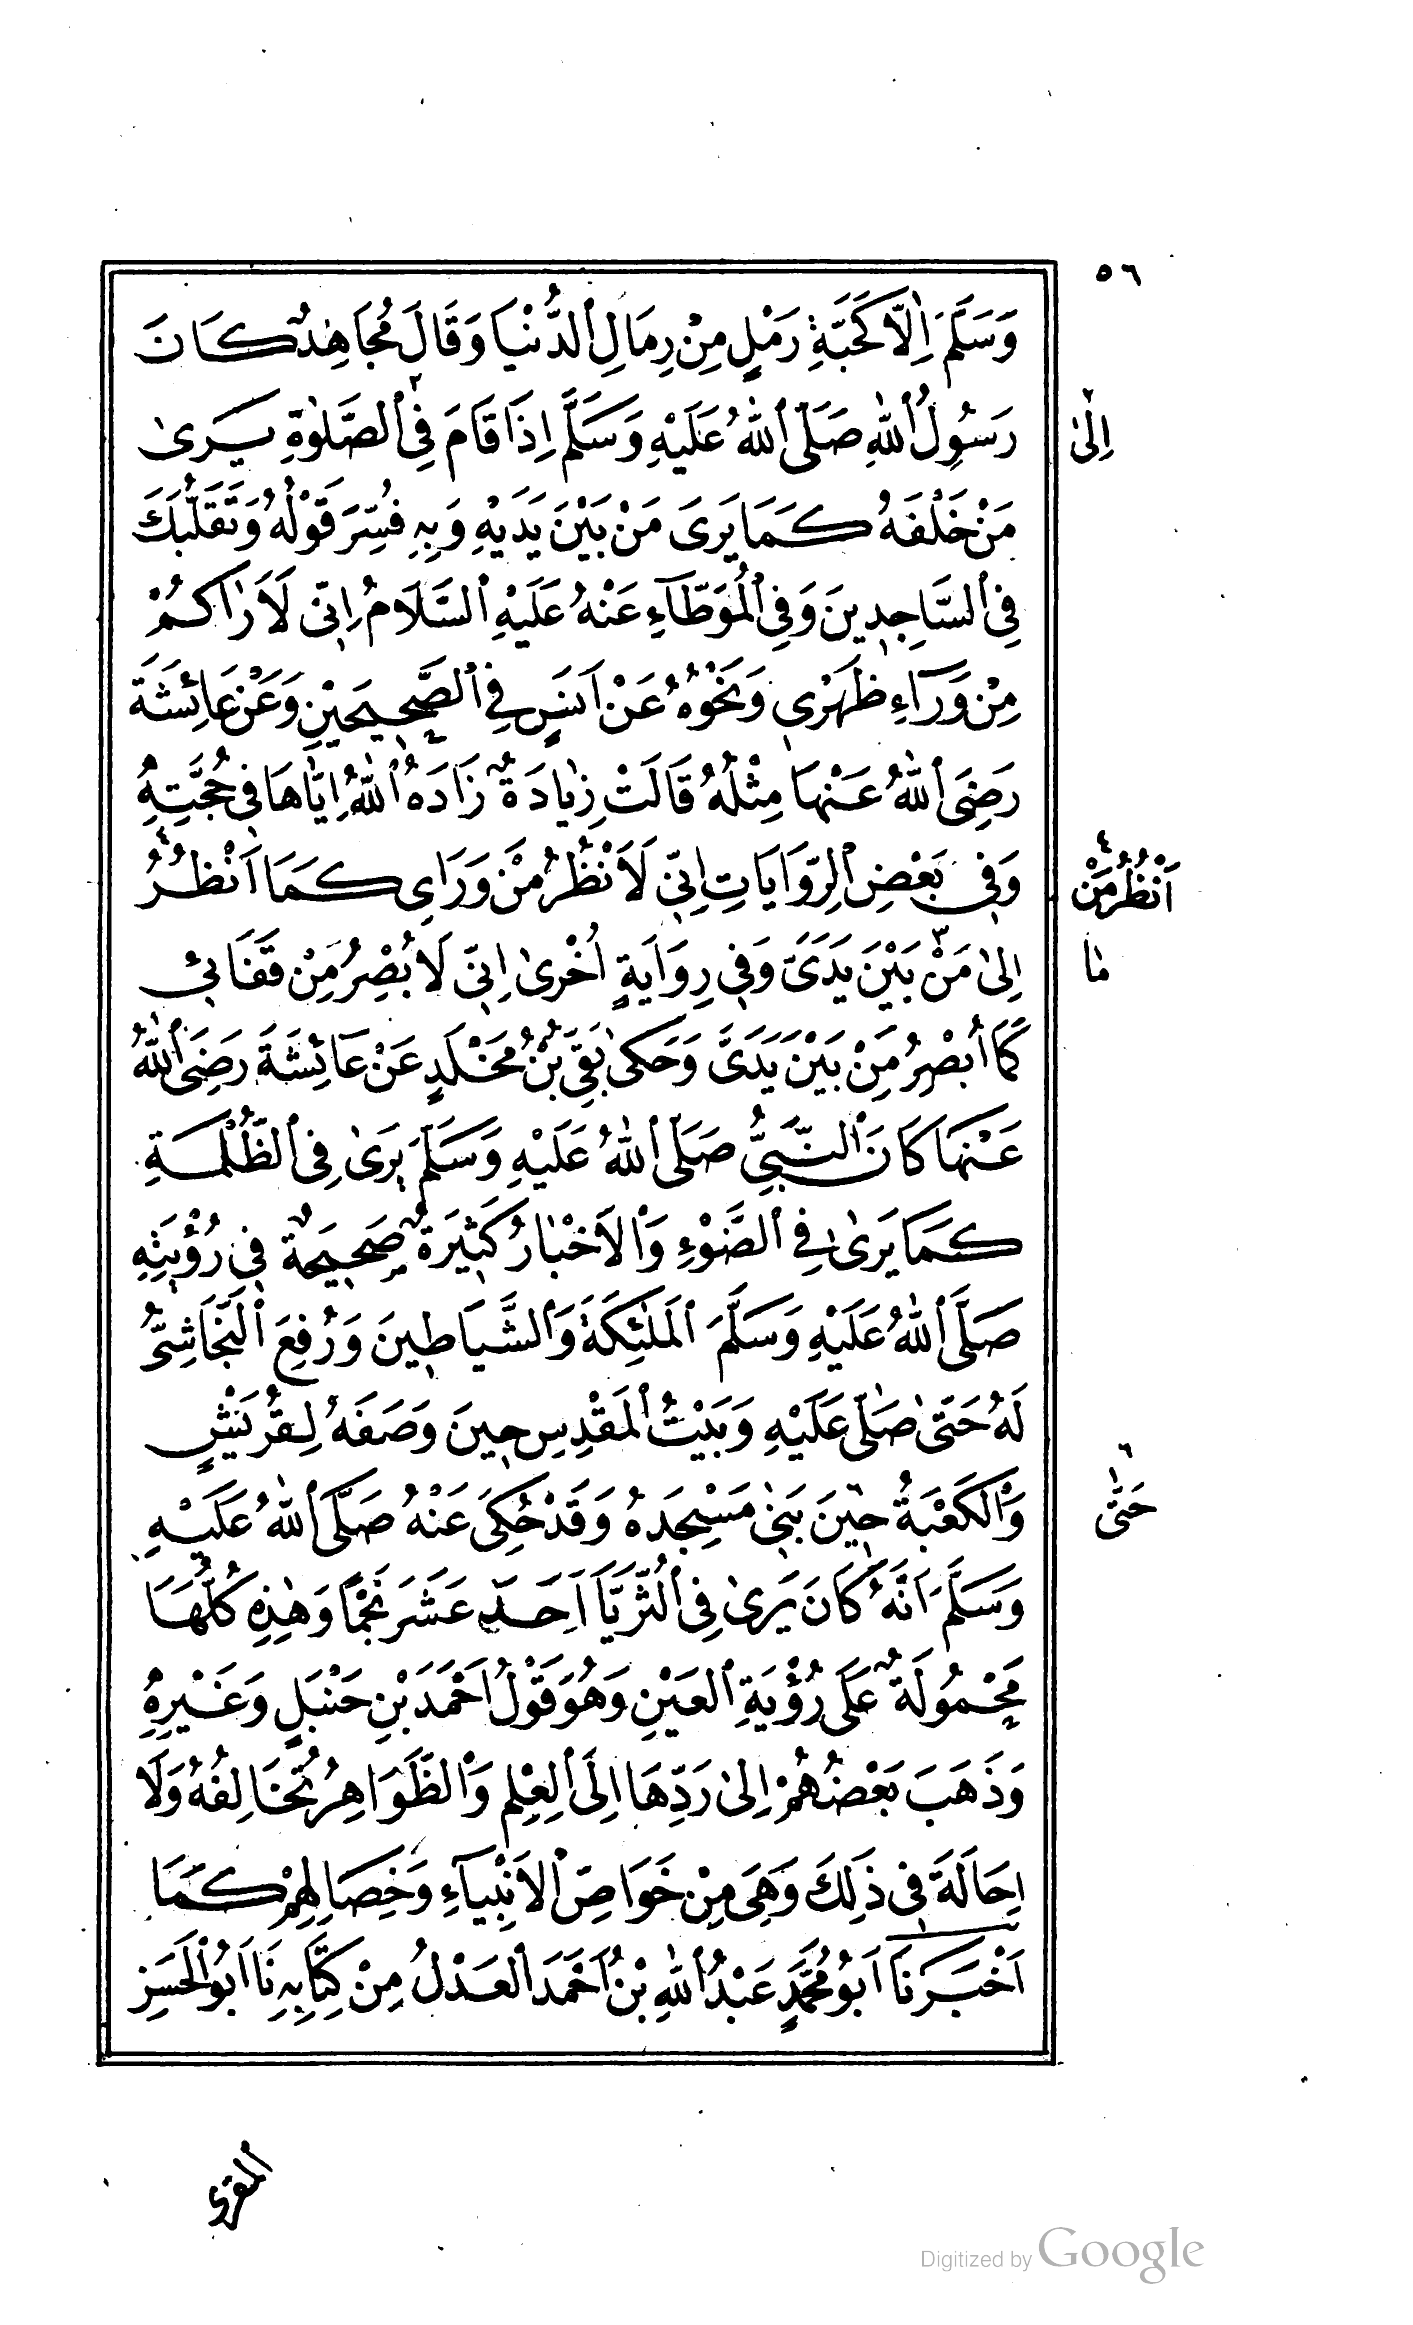 ٥٦
وَسَلَّمَ اِلَّا كَحَبَّةِ رَمْلٍ مِنْ رِمَالِ الدُّنْيَا وَقَالَ مُجَاهِدٌ كَانَ
رَسُولُ اللّٰهِ صَلَّى اللّٰهُ عَلَيْهِ وَسَلَّمَ اِذَا قَامَ فِى ٢ الصَّلٰوةِ يَرٰى
٢ اِلَى
مَنْ خَلْفَهُ كَمَا يَرَى مَنْ بَيْنَ يَدَيْهِ وَبِهِ فُسِّرَ قَوْلُهُ وَتَقَلُّبَكَ
فِى السَّاجِدِينَ وَفِى الْمُوَطَّاءِ عَنْهُ عَلَيْهِ السَّلَامُ اِنِّى لَاَرَاكُمْ
مِنْ وَرَآءِ ظَهْرِى وَنَحْوُهُ عَنْ اَنَسٍ فِى الصَّحِيحَيْنِ وَعَنْ عَائِشَةَ
رَضِىَ اللّٰهُ عَنْهَا مِثْلُهُ قَالَتْ زِيَادَةٌ زَادَهُ اللّٰهُ اِيَّاهَا فِى حُجَّتِهِ
وَفِى بَعْضِ الرِّوَايَاتِ اِنِّى لَاَنْظُرُ مِنْ وَرَاىِ كَمَا اَنْظُرُ ٤
٤ اَنْظُرُ مَنْ
اِلىٰ مَنْ ٣ بَيْنَ يَدَىَّ وَفِى رِوَايَةٍ اُخْرىٰ اِنِّى لَاُبْصِرُ مِنْ قَفَائِى
مَا
كَمَا اُبْصِرُ مِنْ بَيْنَ يَدَىَّ وَحَكىٰ بَقِىُّ بْنُ مَخْلَدٍ عَنْ عَائِشَةَ رَضِىَ اللّٰهُ
عَنْهَا كَانَ النَّبِىُّ صَلَّى اللّٰهُ عَلَيْهِ وَسَلَّمَ يَرىٰ فِى الظُّلْمَةِ
كَمَا يَرىٰ فِى الضَّوْءِ وَالْاَخْبَارُ كَثِيرَةٌ صَحِيحَةٌ فِى رُؤْيَتِهِ
صَلَّى اللّٰهُ عَلَيْهِ وَسَلَّمَ الْمَلٰئِكَةَ وَالشَّيَاطِينَ وَرُفِعَ النَّجَاشِىُّ
لَهُ حَتّىٰ صَلّىٰ عَلَيْهِ وَبَيْتُ الْمَقْدِسِ حِينَ وَصَفَهُ لِقُرَيْشٍ
وَالْكَعْبَةُ حِينَ ٦ بَنىٰ مَسْجِدَهُ وَقَدْ حُكِىَ عَنْهُ صَلَّى اللّٰهُ عَلَيْهِ
٦ حَتَّى
وَسَلَّمَ اَنَّهُ كَانَ يَرىٰ فِى الثُّرَيَّا اَحَدَ عَشَرَ نَجْمًا وَهٰذِهِ كُلُّهَا
مَحْمُولَةٌ عَلَى رُؤْيَةِ الْعَيْنِ وَهُوَ قَوْلُ اَحْمَدَ بْنِ حَنْبَلٍ وَغَيْرِهِ
وَذَهَبَ بَعْضُهُمْ اِلىٰ رَدِّهَا اِلَى الْعِلْمِ وَالظَّوَاهِرُ تُخَالِفُهُ وَلَا
اِحَالَةَ فِى ذَلِكَ وَهِىَ مِنْ خَوَاصِّ الْاَنْبِيَاءِ وَخِصَالِهِمْ كَمَا
اَخْبَرَنَا اَبُو مُحَمَّدٍ عَبْدُ اللّٰهِ بْنُ اَحْمَدَ الْعَدْلُ مِنْ كِتَابِهِ نَا اَبُو الْحَسَنِ
المقرى
Digitized by Google